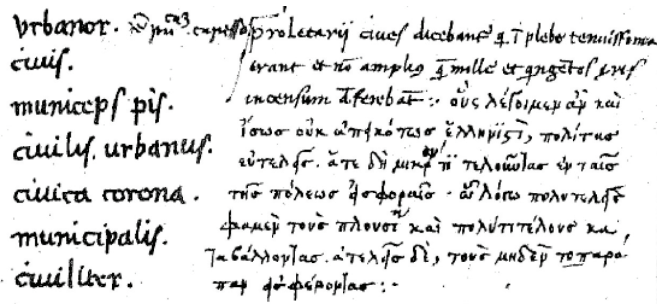 vrbanor.
ciuis.
municeps pis.
ciuilis. urbanus.
ciuica corona.
municipalis.
ciuiliter.
proletarij ciues dicebant q̄ ī plebe tenuissima
erant et nō amplius q̄ mille et qngētos eris
incensum deferebāt :· οὓς λέγοιμεν ἂν καὶ
ἴσως οὐκ ἀπεικότως ἑλληνιστὶ, πολίτας
εὐτελεῖς. ἅτε δὴ μικρόν τι τελοῦντας ἐν ταῖς
τῆς πόλεως εἰσφοραῖς. ᾧ λόγῳ πολυτελεῖς
φαμὲν τοὺς πλουσίους καὶ πολύ τι τέλους κα
ταβάλλοντας. ἀτελεῖς δὲ, τοὺς μηδὲν τοπαρα
παν εἰσφέροντας :·